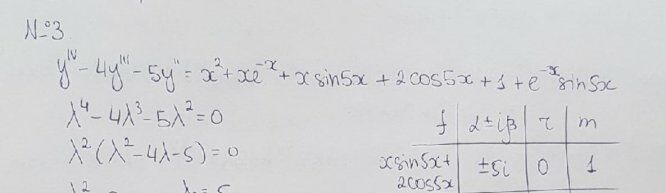 №3
y^IV - 4y^III - 5y^II = x² + xe^-x + x sin5x + 2cos5x + 1 + e^-x sin5x
λ⁴ - 4λ³ - 5λ² = 0
λ²(λ² - 4λ - 5) = 0
f | α±iβ | r | m
x sin5x + 2cos5x | ±5i | 0 | 1